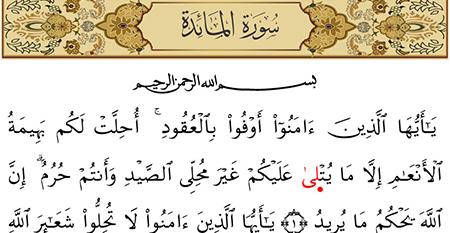 سُورَةُ المَائدَة
بِسْمِ اللهِ الرَّحْمٰنِ الرَّحِيمِ
يَٰٓأَيُّهَا ٱلَّذِينَ ءَامَنُوٓا۟ أَوْفُوا۟ بِٱلْعُقُودِ ۚ أُحِلَّتْ لَكُم بَهِيمَةُ
ٱلْأَنْعَٰمِ إِلَّا مَا يُتْلَىٰ عَلَيْكُمْ غَيْرَ مُحِلِّى ٱلصَّيْدِ وَأَنتُمْ حُرُمٌ ۗ إِنَّ
ٱللَّهَ يَحْكُمُ مَا يُرِيدُ ﴿١﴾ يَٰٓأَيُّهَا ٱلَّذِينَ ءَامَنُوا۟ لَا تُحِلُّوا۟ شَعَٰٓئِرَ ٱللَّهِ